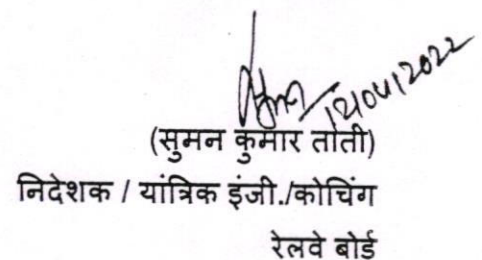 12/04/2022
(सुमन कुमार ताती)
निदेशक / यांत्रिक इंजी./कोचिंग
रेलवे बोर्ड